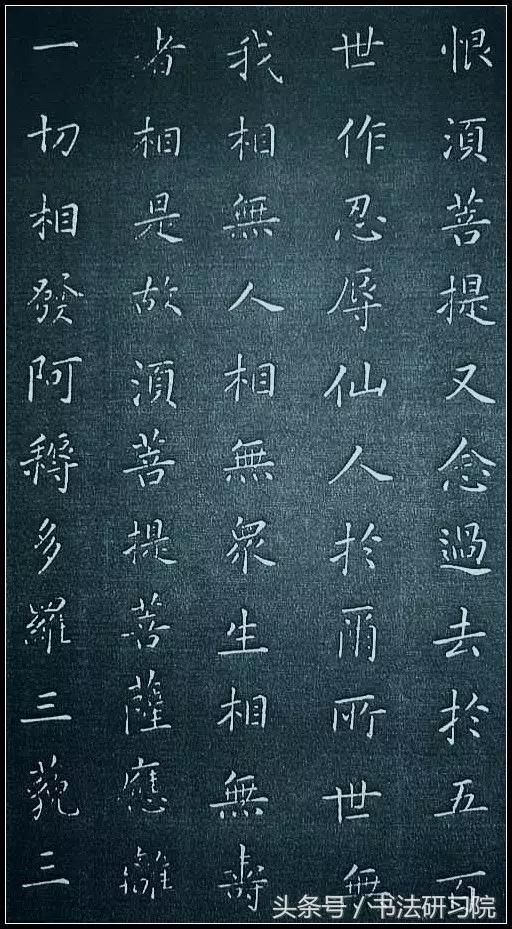 恨須菩提又念過去於五百
世作忍辱仙人於爾所世無
我相無人相無眾生相無壽
者相是故須菩提菩薩應離
一切相發阿耨多羅三藐三
头条号 / 书法研习院